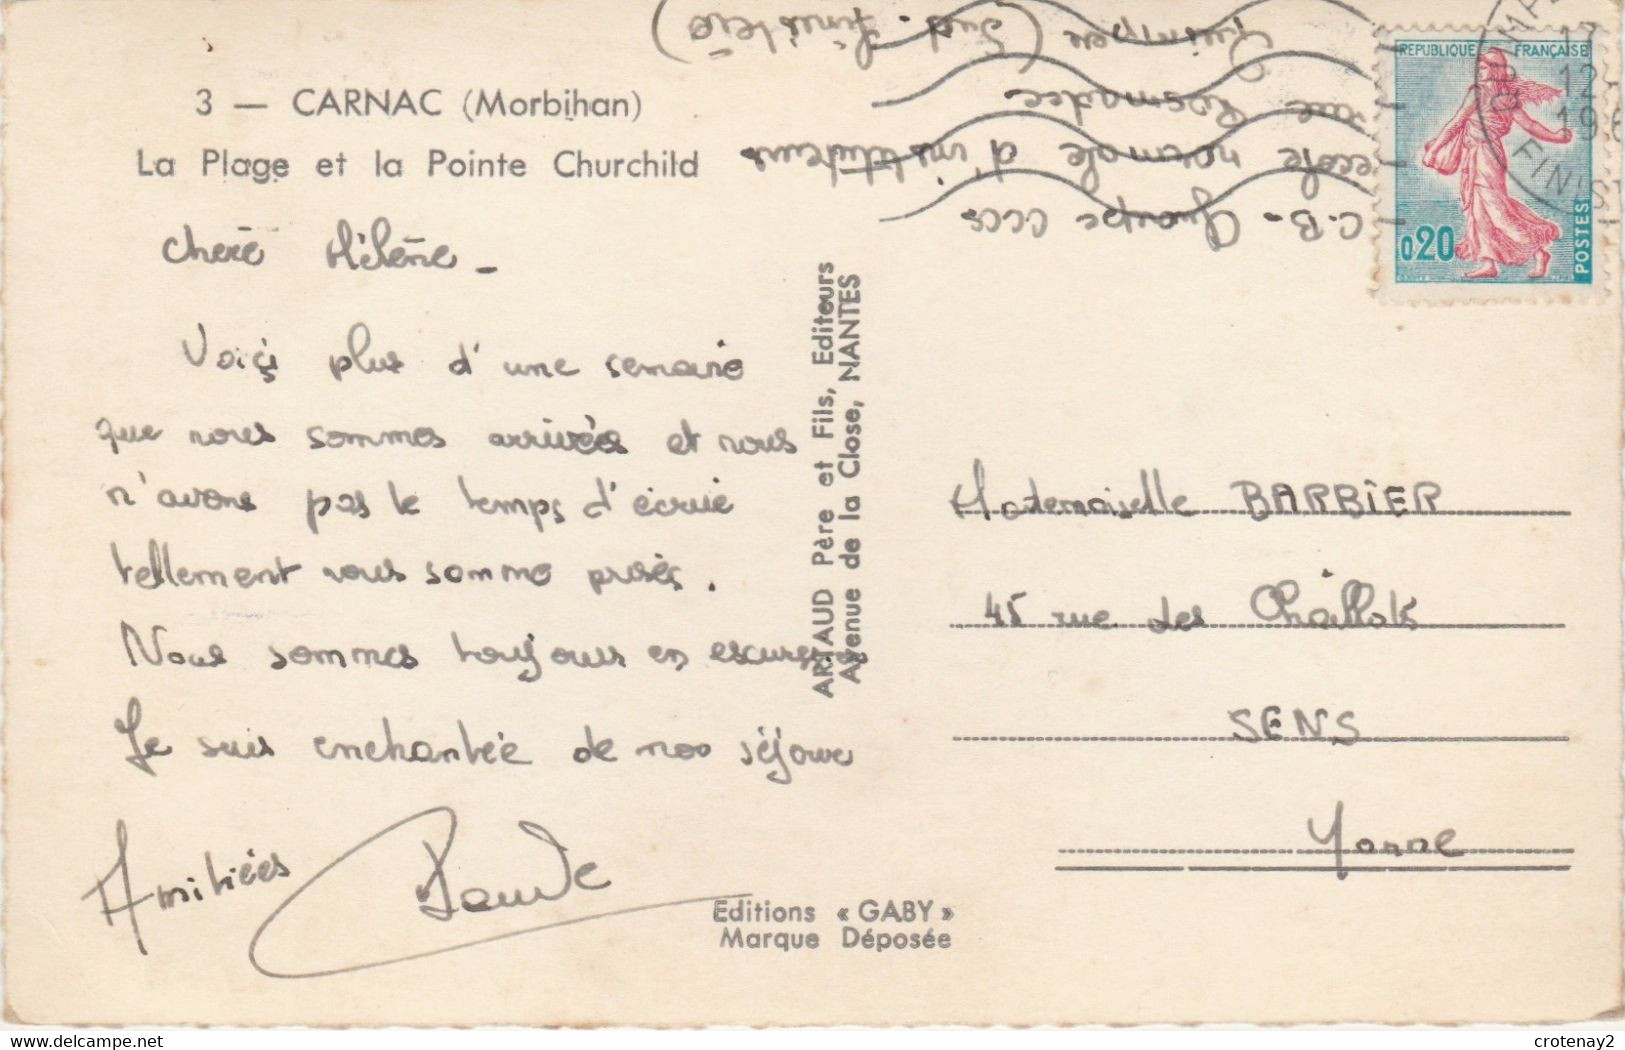 3 — CARNAC (Morbihan)
La Plage et la Pointe Churchild
Chère Hélène -
Voiçi plus d'une semaine
que nous sommes arrivées et nous
n'avons pas le temps d'écrire
tellement nous somme prisés.
Nous sommes toujours en escursion
Je suis enchantée de mon séjour
Amitiées
C.B - Groupe
école normale d'instituteurs
rue Rosmadec
Quimper (Sud - Finistère)
ARTAUD Père et Fils, Editeurs
Avenue de la Close, NANTES
Editions « GABY »
Marque Déposée
REPUBLIQUE FRANÇAISE
0,20
POSTES
17
12
19
FINIST
Mademoiselle BARBIER
45 rue des Chaillots
SENS
Yonne
crotenay2